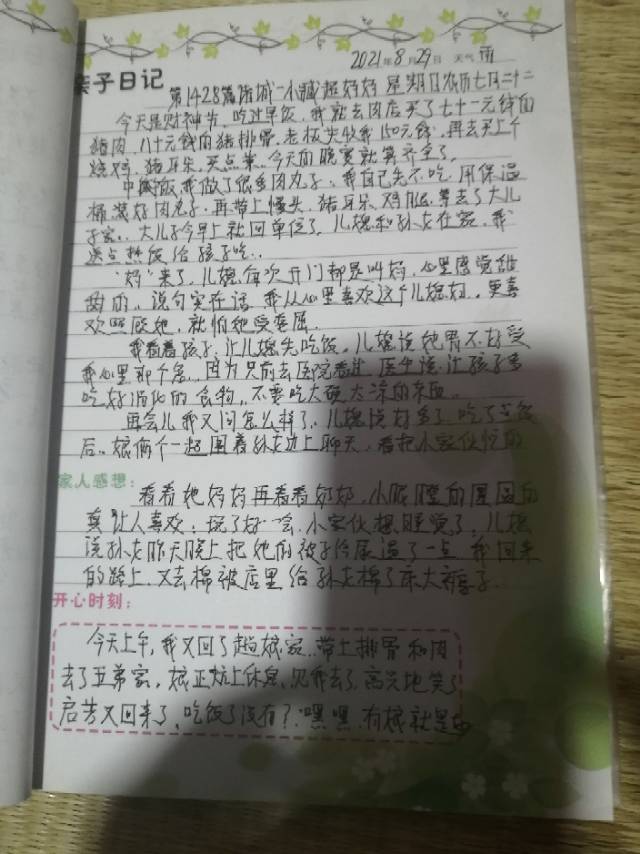 2021年8月29日 天气 雨
亲子日记
第1428篇 诸城一小臧超妈妈 星期日农历七月二十二
今天是财神节。吃过早饭，我就去肉店买了七十二元钱的
猪肉，八十元钱的猪排骨。老板共收我150元钱，再去买上个
烧鸡，猪耳朵，买点菜。今天的晚宴就算齐全了。
中午饭我做了很多肉丸子，我自己先不吃，用保温
桶装好肉丸子，再带上馒头，猪耳朵，鸡腿，拿去了大儿
子家。大儿子今早上就回单位了，儿媳和孙女在家，我
送点热饭给孩子吃。
"妈"来了，儿媳每次开门都是叫妈，心里感觉甜
甜的。说句实在话，我从心里喜欢这个儿媳妇。更喜
欢照顾她，就怕她受委屈。
我看着孩子，让儿媳先吃饭。儿媳说她胃不好受
我心里那个急。因为只前去医院看过，医生说，让孩子多
吃好消化的食物，不要吃太硬太凉的东西。
再会儿我又问怎么样了，儿媳说好多了。吃了饭
后，娘俩个一起围着孙女边上聊天，看把小家伙忙的
家人感想：
看看她妈妈再看看奶奶，小眼瞪的圆圆的
真让人喜欢，玩了好一会，小家伙想睡觉了，儿媳
说孙女昨天晚上把她的被子给尿湿了一点 我回来
的路上，又去棉被店里给孙女棉了床大褥子。
开心时刻：
今天上午，我又回了趟娘家，带上排骨和肉
去了五弟家，娘正炕上休息，见我去了，高兴地笑了
启芳又回来了，吃饭了没有？嘿嘿，有娘就是好